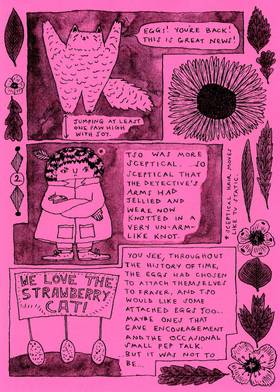 EGGS! YOU'RE BACK!
THIS IS GREAT NEWS!
JUMPING AT LEAST
ONE PAW HIGH
WITH JOY.
TSO WAS MORE
SCEPTICAL. ...SO
SCEPTICAL THAT
THE DETECTIVE'S
ARMS HAD
JELLIED AND
WERE NOW
KNOTTED IN A
VERY UN-ARM-
LIKE KNOT.
*SCEPTICAL HAIR MOVES
LIKE TV STATIC
2
WE LOVE THE
STRAWBERRY
CAT!
YOU SEE, THROUGHOUT
THE HISTORY OF TIME,
THE EGGS HAD CHOSEN
TO ATTACH THEMSELVES
TO FRASER, AND TSO
WOULD LIKE SOME
ATTACHED EGGS TOO...
MAYBE ONES THAT
GAVE ENCOURAGEMENT
AND THE OCCASIONAL
SMALL PEP TALK.
BUT IT WAS NOT TO
BE...